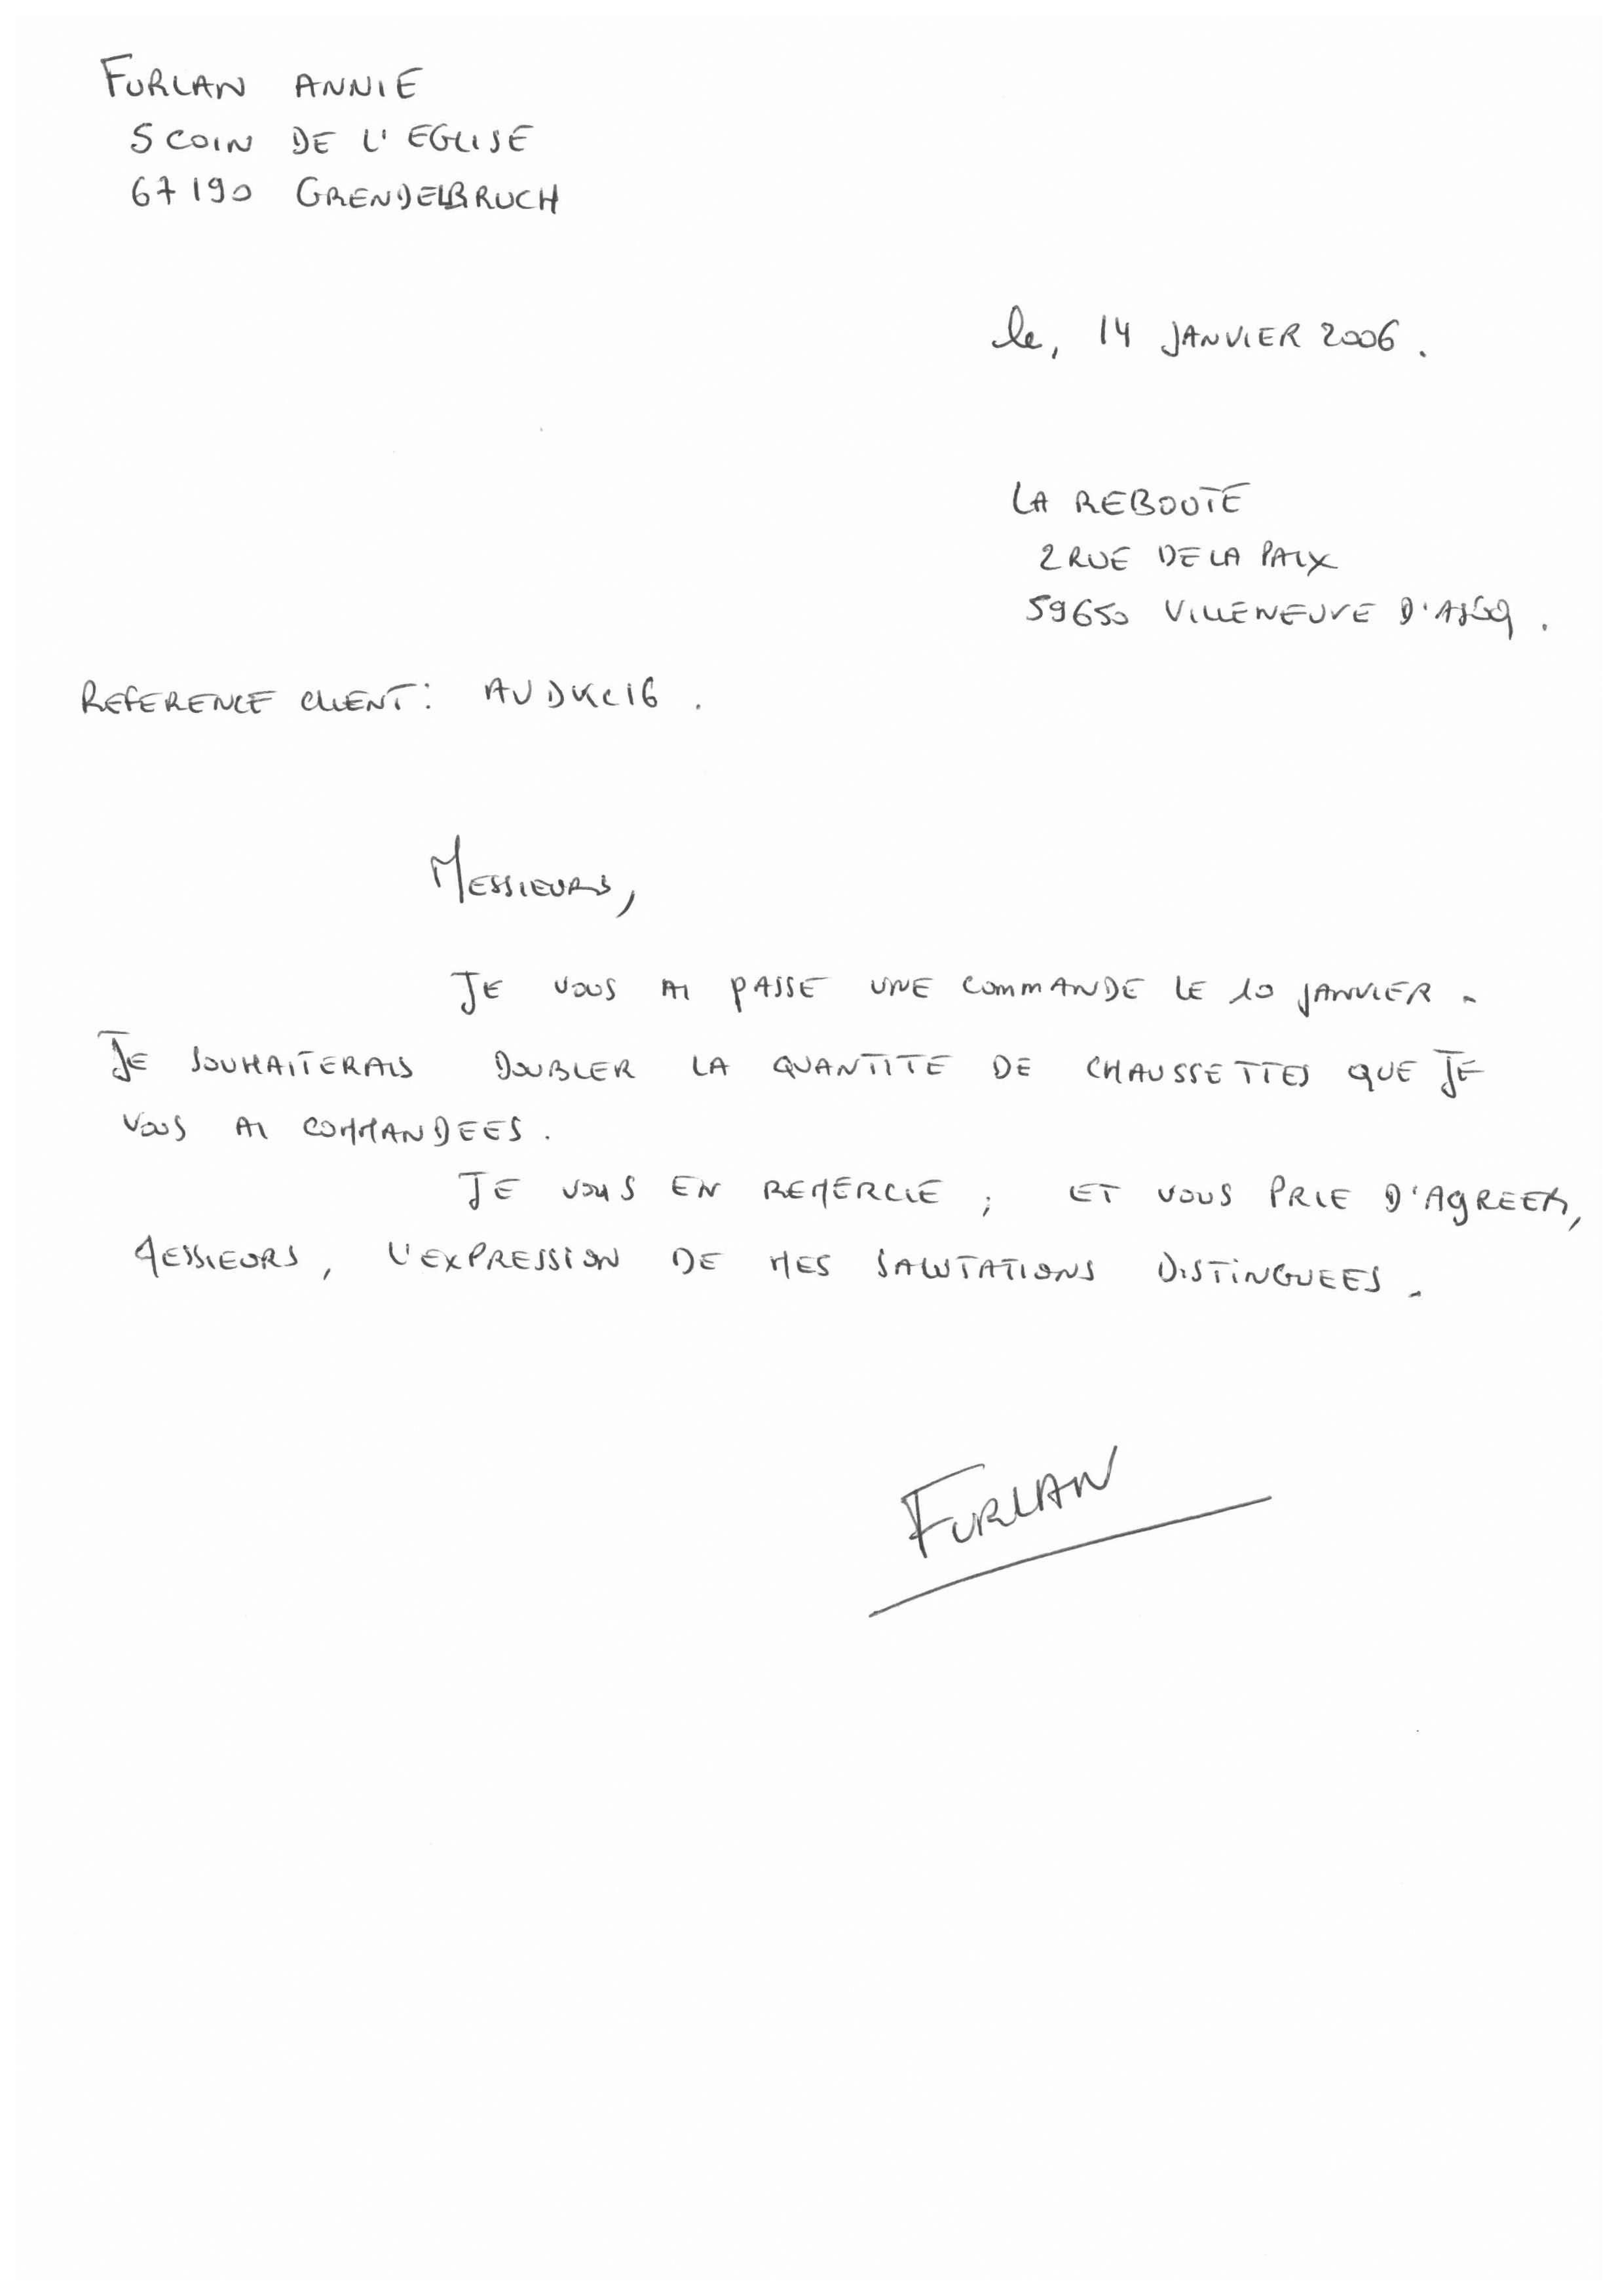 FURLAN ANNIE
5 COIN DE L'EGLISE
67190 GRENDELBRUCH
le, 14 JANVIER 2006.
LA REBOUTE
2 RUE DE LA PAIX
59650 VILLENEUVE D'ASCQ.
REFERENCE CLIENT: AVDKC16.
MESSIEURS,
JE VOUS AI PASSE UNE COMMANDE LE 10 JANVIER.
JE SOUHAITERAIS DOUBLER LA QUANTITE DE CHAUSSETTES QUE JE
VOUS AI COMMANDEES.
JE VOUS EN REMERCIE ; ET VOUS PRIE D'AGREER,
MESSIEURS, L'EXPRESSION DE MES SALUTATIONS DISTINGUEES.
FURLAN